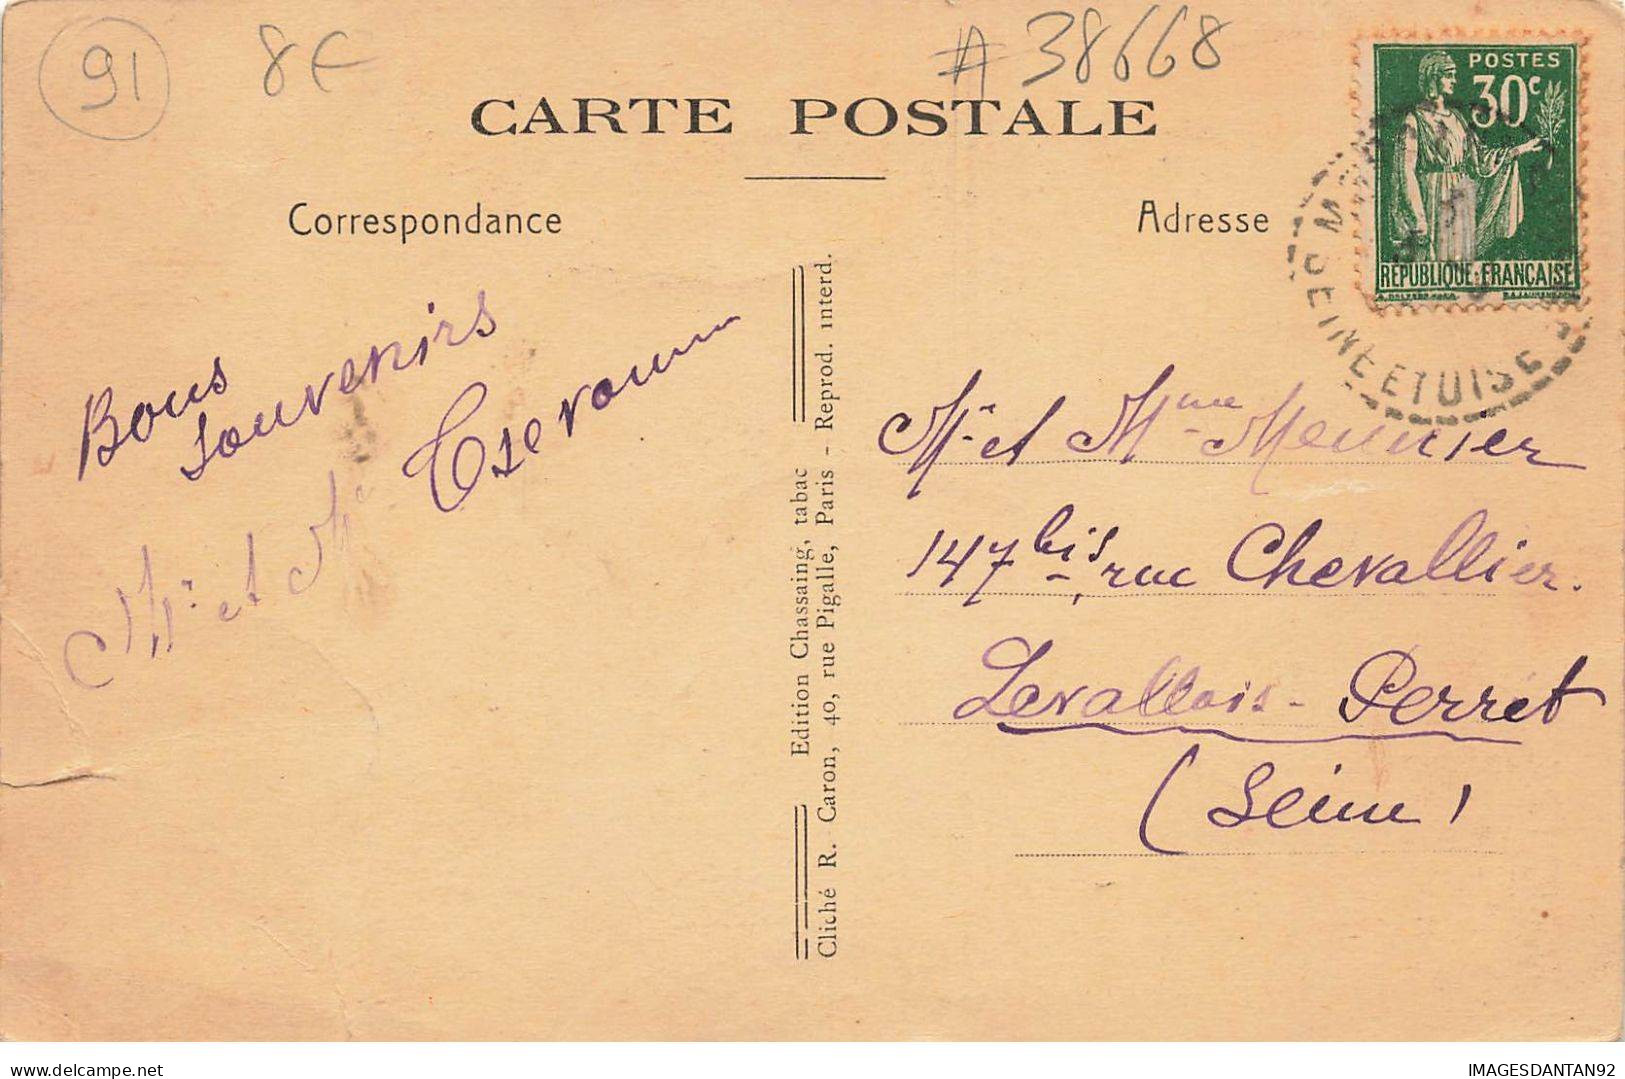 91
8€
# 38668
CARTE POSTALE
POSTES
30c
RÉPUBLIQUE FRANÇAISE
SEINE ET OISE
Correspondance
Adresse
Bons
souvenirs
Mr et Me
Edition Chassaing, tabac
Cliché R. Caron, 40, rue Pigalle, Paris - Reprod. interd.
Mr et Mme Meunier
147 bis, rue Chevallier.
Levallois-Perret
(Seine)
IMAGESDANTAN92
delcampe.net